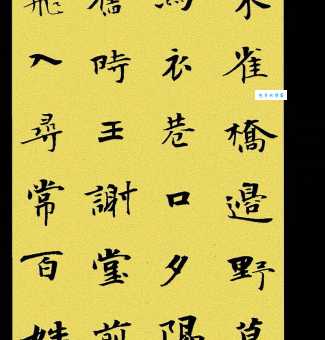 朱雀橋邊野草
烏衣巷口夕陽
舊時王謝堂前
飛入尋常百姓